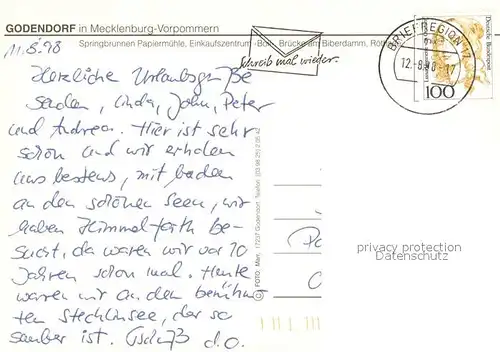 GODENDORF in Mecklenburg-Vorpommern
11.8.98
Springbrunnen Papiermühle, Einkaufszentrum Brücke am Biberdamm,
Schreib mal wieder.
BRIEFREGION 17
12.-8.98-17
Deutsche Bundespost
100
Herzliche Urlaubsgrüße
senden, Linda, John, Peter
und Andrea. Hier ist sehr
schön und wir erholen
uns bestens, mit baden
an den schönen Seen, wir
haben Himmelpfort be-
sucht, da waren wir vor 10
Jahren schon mal. Heute
waren wir an den berühm-
ten Stechlinsee, der so
sauber ist. Gruß d.o.
© FOTO: Marr, 17237 Godendorf, Telefon
privacy protection
Datenschutz